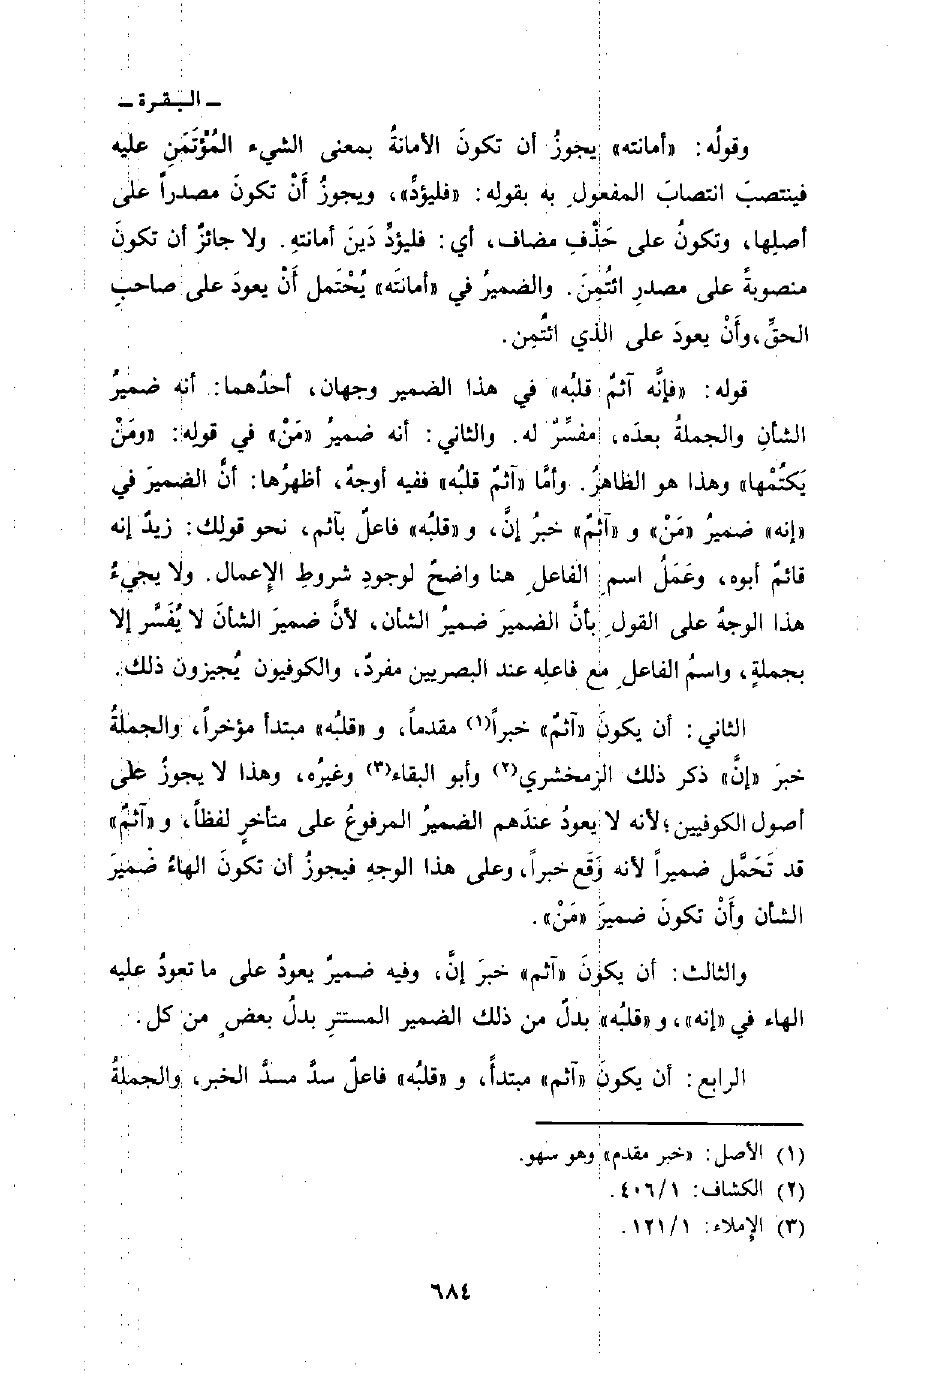 ـ البقرة ـ
وقولُه: «أمانته» يجوزُ أن تكونَ الأمانةُ بمعنى الشيء المُؤْتَمَنِ عليه
فينتصبَ انتصابَ المفعولِ به بقولِه: «فليؤدِّ»، ويجوزُ أَنْ تكونَ مصدراً على
أصلِها، وتكونُ على حَذْفِ مضاف، أي: فليؤدِّ دَينَ أمانتهِ. ولا جائزٌ أن تكونَ
منصوبةً على مصدرِ ائتُمِنَ. والضميرُ في «أمانتَه» يُحْتَمل أَنْ يعودَ على صاحبِ
الحقِّ، وأَنْ يعودَ على الذي ائتُمِن.
قوله: «فإنَّه آثمٌ قلبُه» في هذا الضمير وجهان، أحدُهما: أنه ضميرُ
الشأنِ والجملةُ بعدَه، مفسِّرٌ له. والثاني: أنه ضميرُ «مَنْ» في قوله: «ومَنْ
يَكتُمْها» وهذا هو الظاهرُ. وأمَّا «آثمٌ قلبُه» ففيه أوجهٌ، أظهرُها: أنَّ الضميرَ في
«إنه» ضميرُ «مَنْ» و «آثمٌ» خبرُ إنَّ، و «قلبُه» فاعلٌ بآثم، نحو قولِك: زيدٌ إنه
قائمٌ أبوه، وعَمَلُ اسمِ الفاعلِ هنا واضحٌ لوجودِ شروطِ الإِعمال. ولا يجيءُ
هذا الوجهُ على القولِ بأنَّ الضميرَ ضميرُ الشأن، لأنَّ ضميرَ الشأنَ لا يُفَسَّر إلا
بجملةٍ، واسمُ الفاعلِ مع فاعلِه عند البصريين مفردٌ، والكوفيون يُجيزون ذلك.
الثاني: أن يكونَ «آثمٌ» خبراً(١) مقدماً، و «قلبُه» مبتدأ مؤخراً، والجملةُ
خبرَ «إنَّ» ذكر ذلك الزمخشري(٢) وأبو البقاء(٣) وغيرُه، وهذا لا يجوزُ على
أصول الكوفيين؛ لأنه لا يعودُ عندَهم الضميرُ المرفوعُ على متأخرٍ لفظاً، و «آثمٌ»
قد تَحَمَّل ضميراً لأنه وَقَع خبراً، وعلى هذا الوجهِ فيجوزُ أن تكونَ الهاءُ ضميرَ
الشأن وأَنْ تكونَ ضميرَ «مَنْ».
والثالث: أن يكونَ «آثم» خبرَ إنَّ، وفيه ضميرٌ يعودُ على ما تعودُ عليه
الهاء في «إنه»، و «قلبُه» بدلٌ من ذلك الضمير المستترِ بدلُ بعضٍ من كل.
الرابع: أن يكونَ «آثم» مبتدأً، و «قلبُه» فاعلٌ سدَّ مسدَّ الخبر، والجملةُ
(١) الأصل: «خبر مقدم» وهو سهو.
(٢) الكشاف: ٤٠٦/١.
(٣) الإملاء: ١٢١/١.
٦٨٤